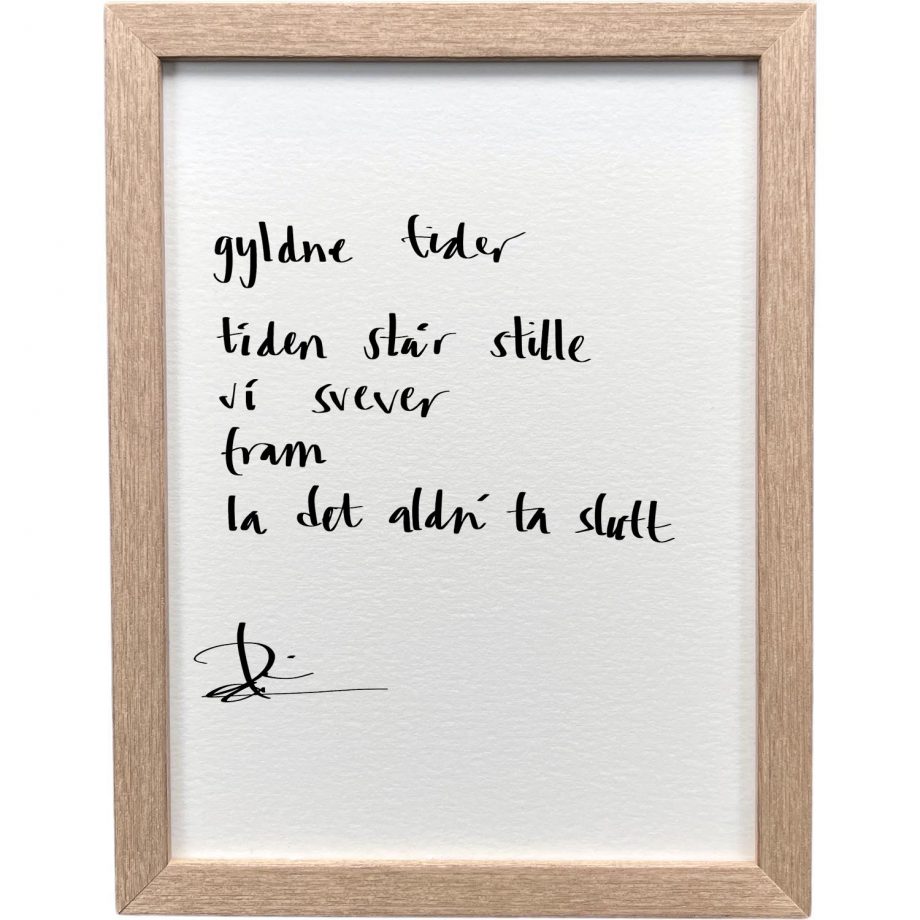 gyldne tider
tiden står stille
vi svever
fram
la det aldri ta slutt